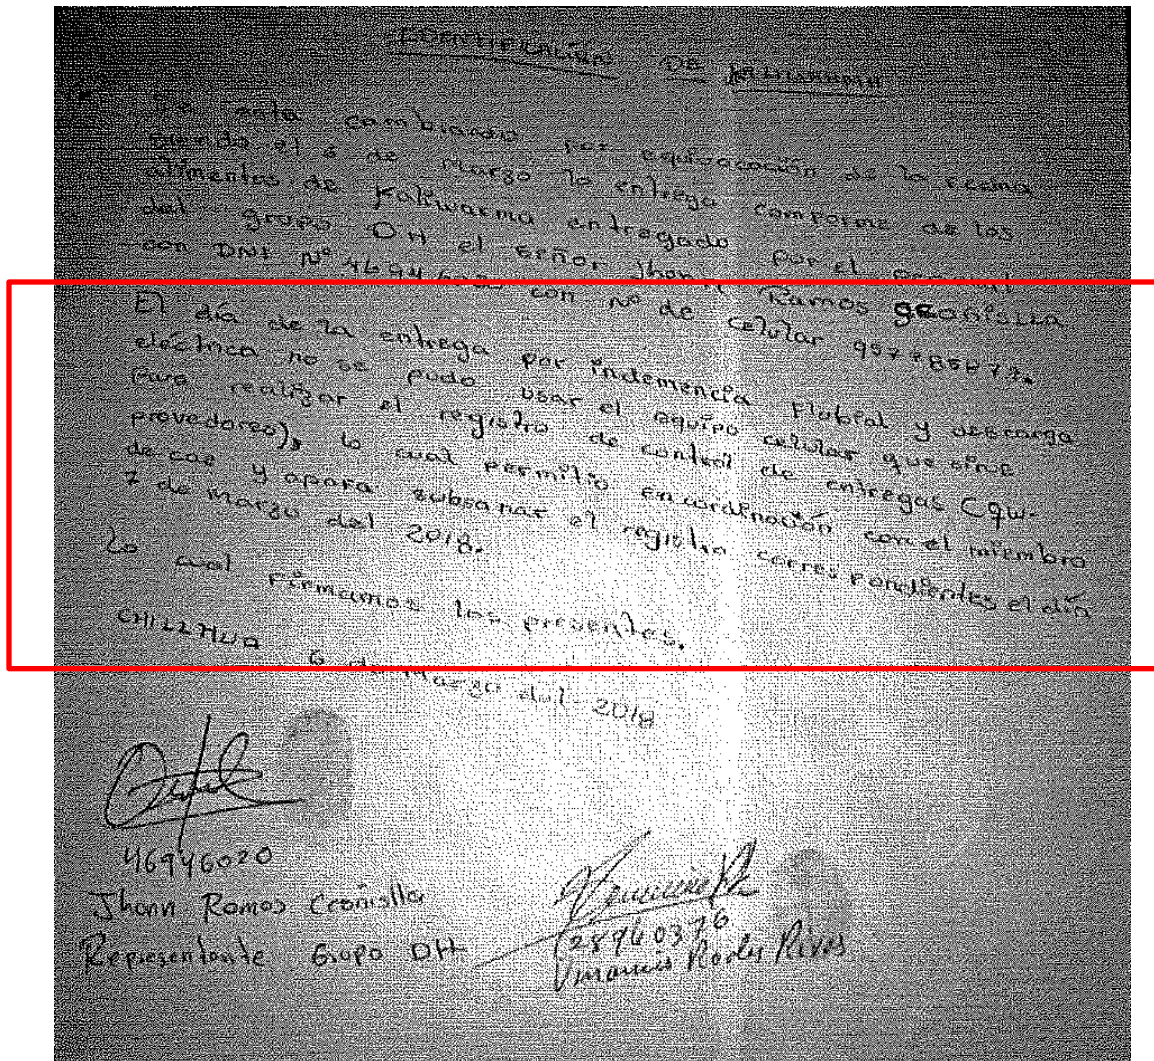 DE
Se esta cambiando por equivocación de la fecha
siendo el 6 de Marzo la entrega conforme de los
alimentos de Kaliwarma entregado por el
del grupo DH el señor Jhonn Ramos
con DNI Nº 46946020 con nº de celular
El día de la entrega por inclemencia plubial y descarga
eléctrica no se pudo usar el equipo celular que sirve
para realizar el registro de control de entregas Cqw-
provedores), lo cual permitio encordinación con el miembro
de cae y apara subsanar el registro correspondientes el día
7 de Marzo del 2018.
lo cual firmamos los presentes.
CHILLHUA 6 de Marzo del 2018
46946020
Jhonn Ramos
Representante Grupo DH
28960376